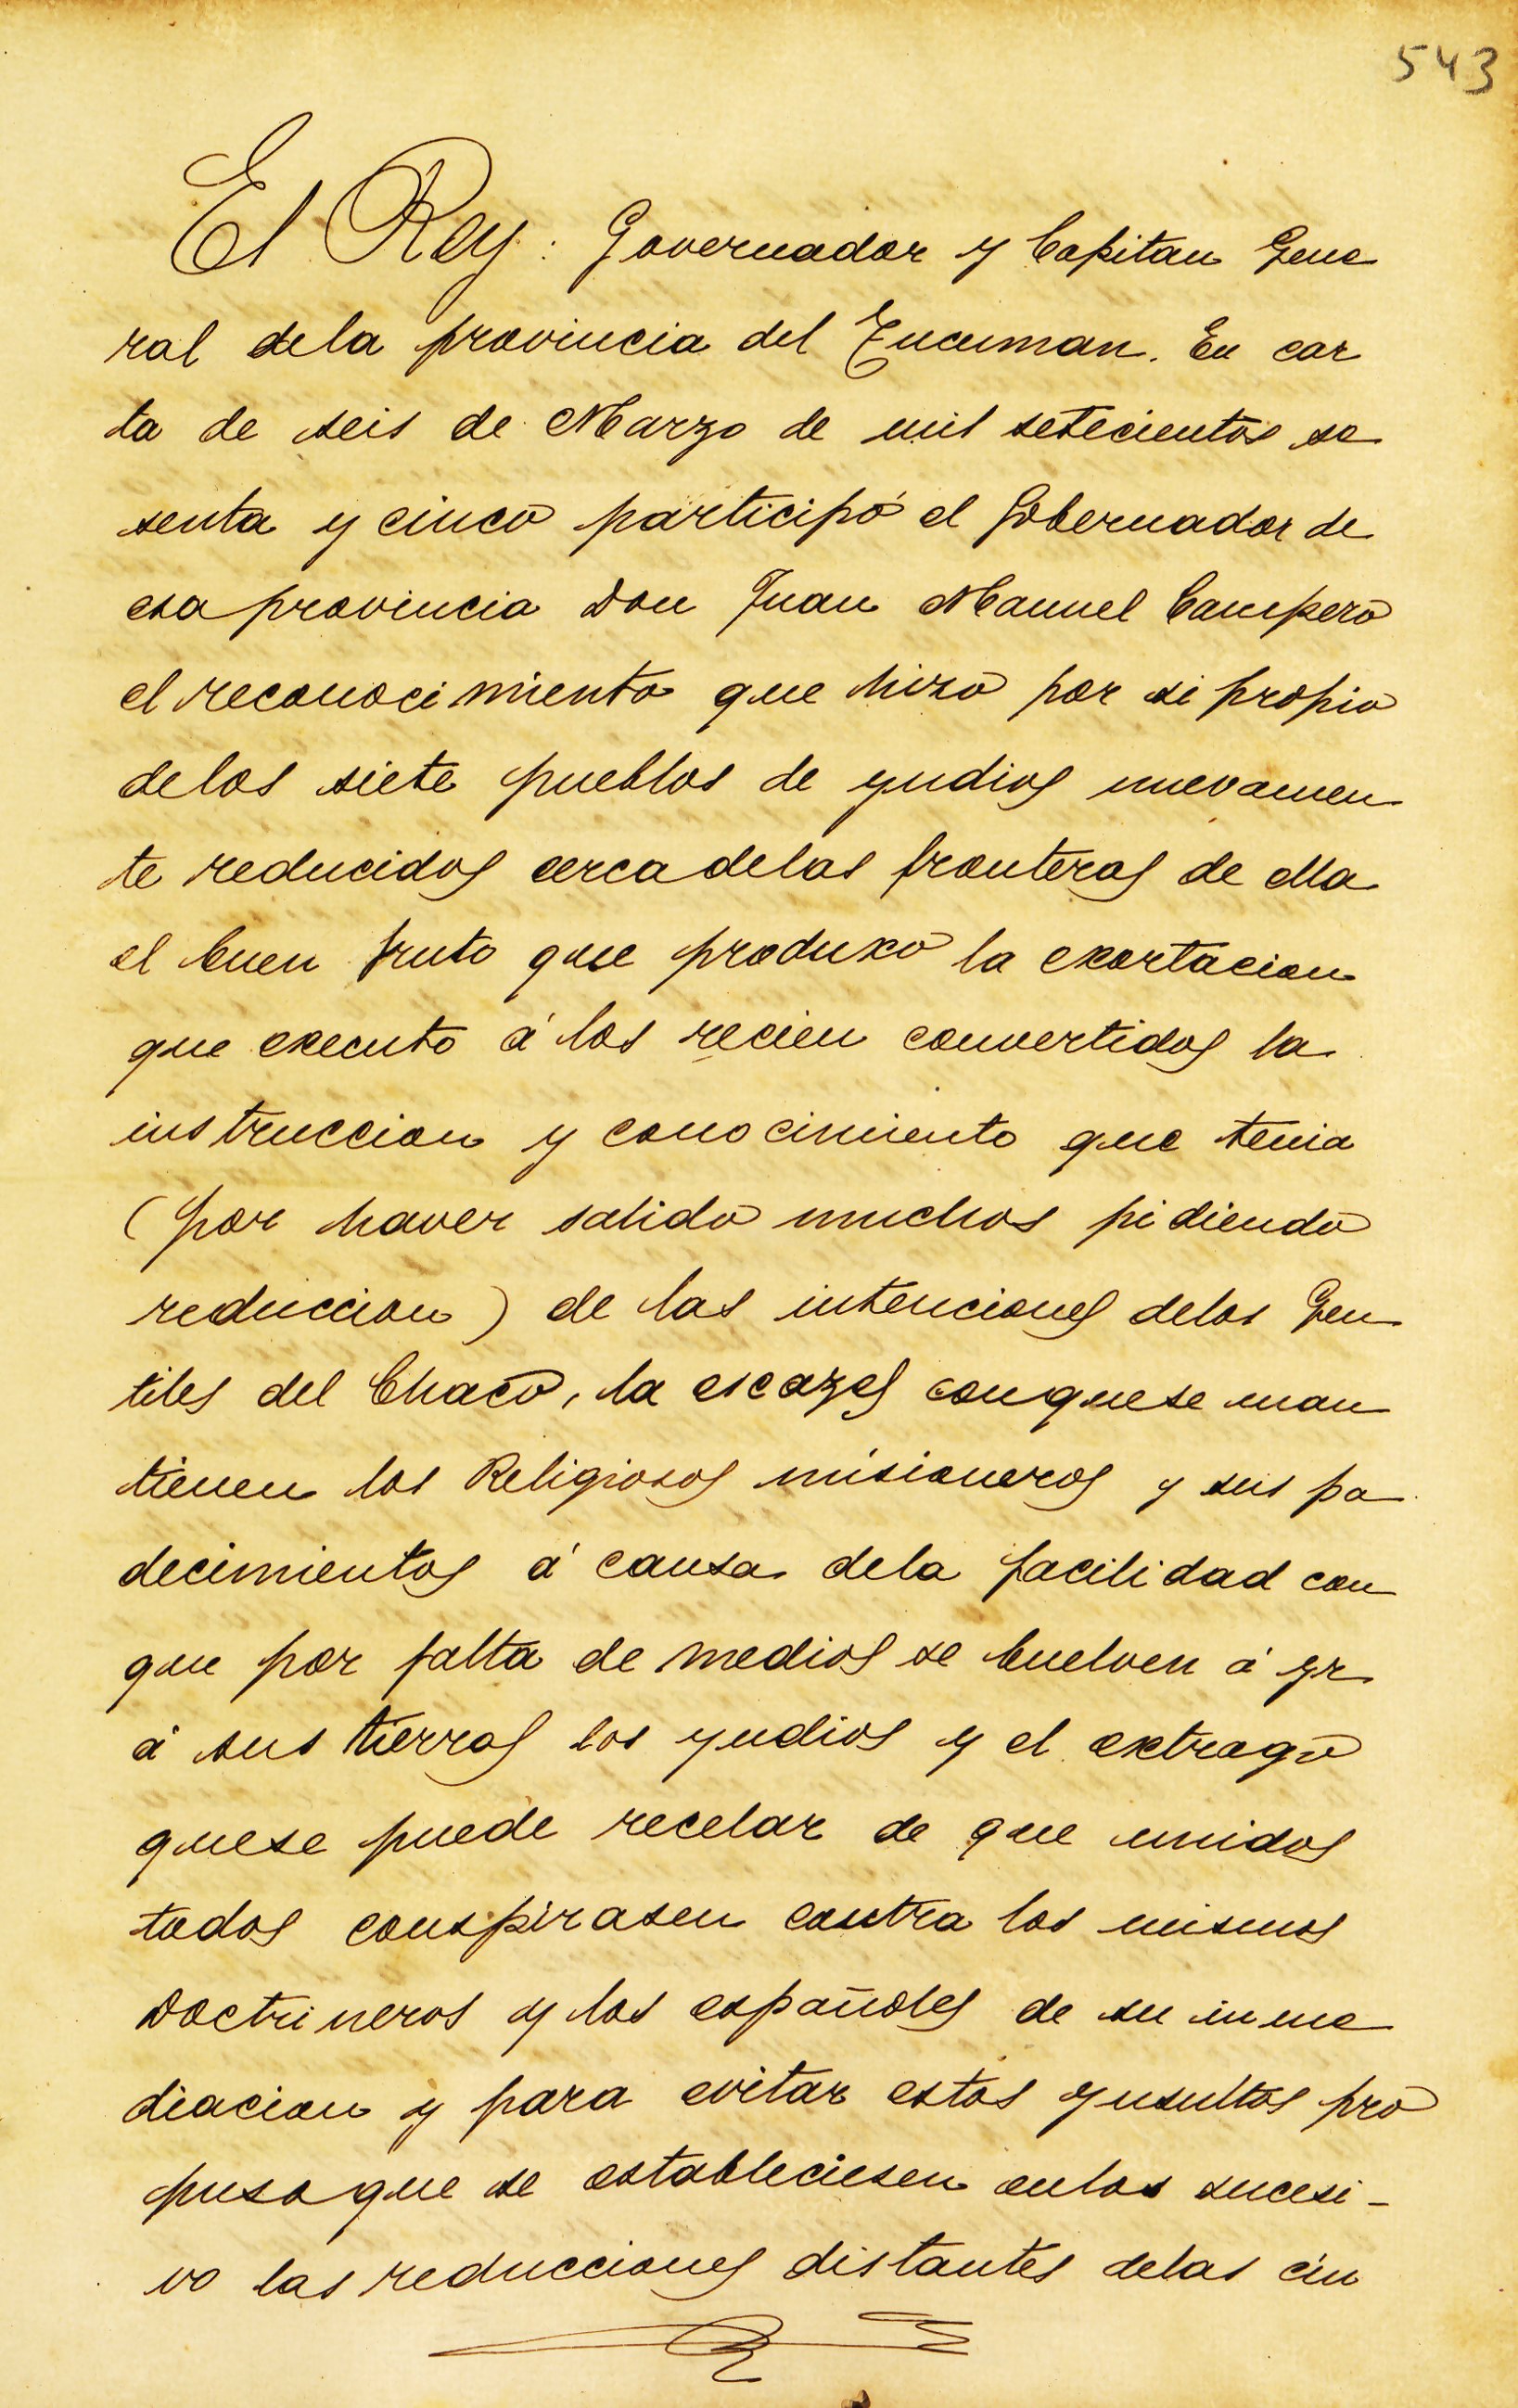 543
El Rey: Governador y Capitan Gene
ral dela provincia del Tucuman. En car
ta de seis de Marzo de mil setecientos se
senta y cinco participó el Gobernador de
esa provincia Don Juan Manuel Campero
el reconocimiento que hizo por si propio
delos siete pueblos de yndios nuevamen
te reducidos cerca delas fronteras de ella
el buen fruto que produxo la exortacion
que executo á los recien convertidos la
instruccion y conocimiento que tenia
(por haver salido muchos pidiendo
reduccion) de las intenciones delos Gen
tiles del Chaco, la escazes conquese man
tienen los Religiosos misioneros y sus pa
decimientos á causa dela facilidad con
que por falta de medios se buelven á yr
á sus tierras los yndios y el extrago
quese puede recelar de que unidos
todos conspirasen contra los mismos
Doctrineros y los españoles de su inme
diacion y para evitar estos ynsultos pro
puso que se estableciesen enlos sucesi-
vo las reducciones distantes delas cin